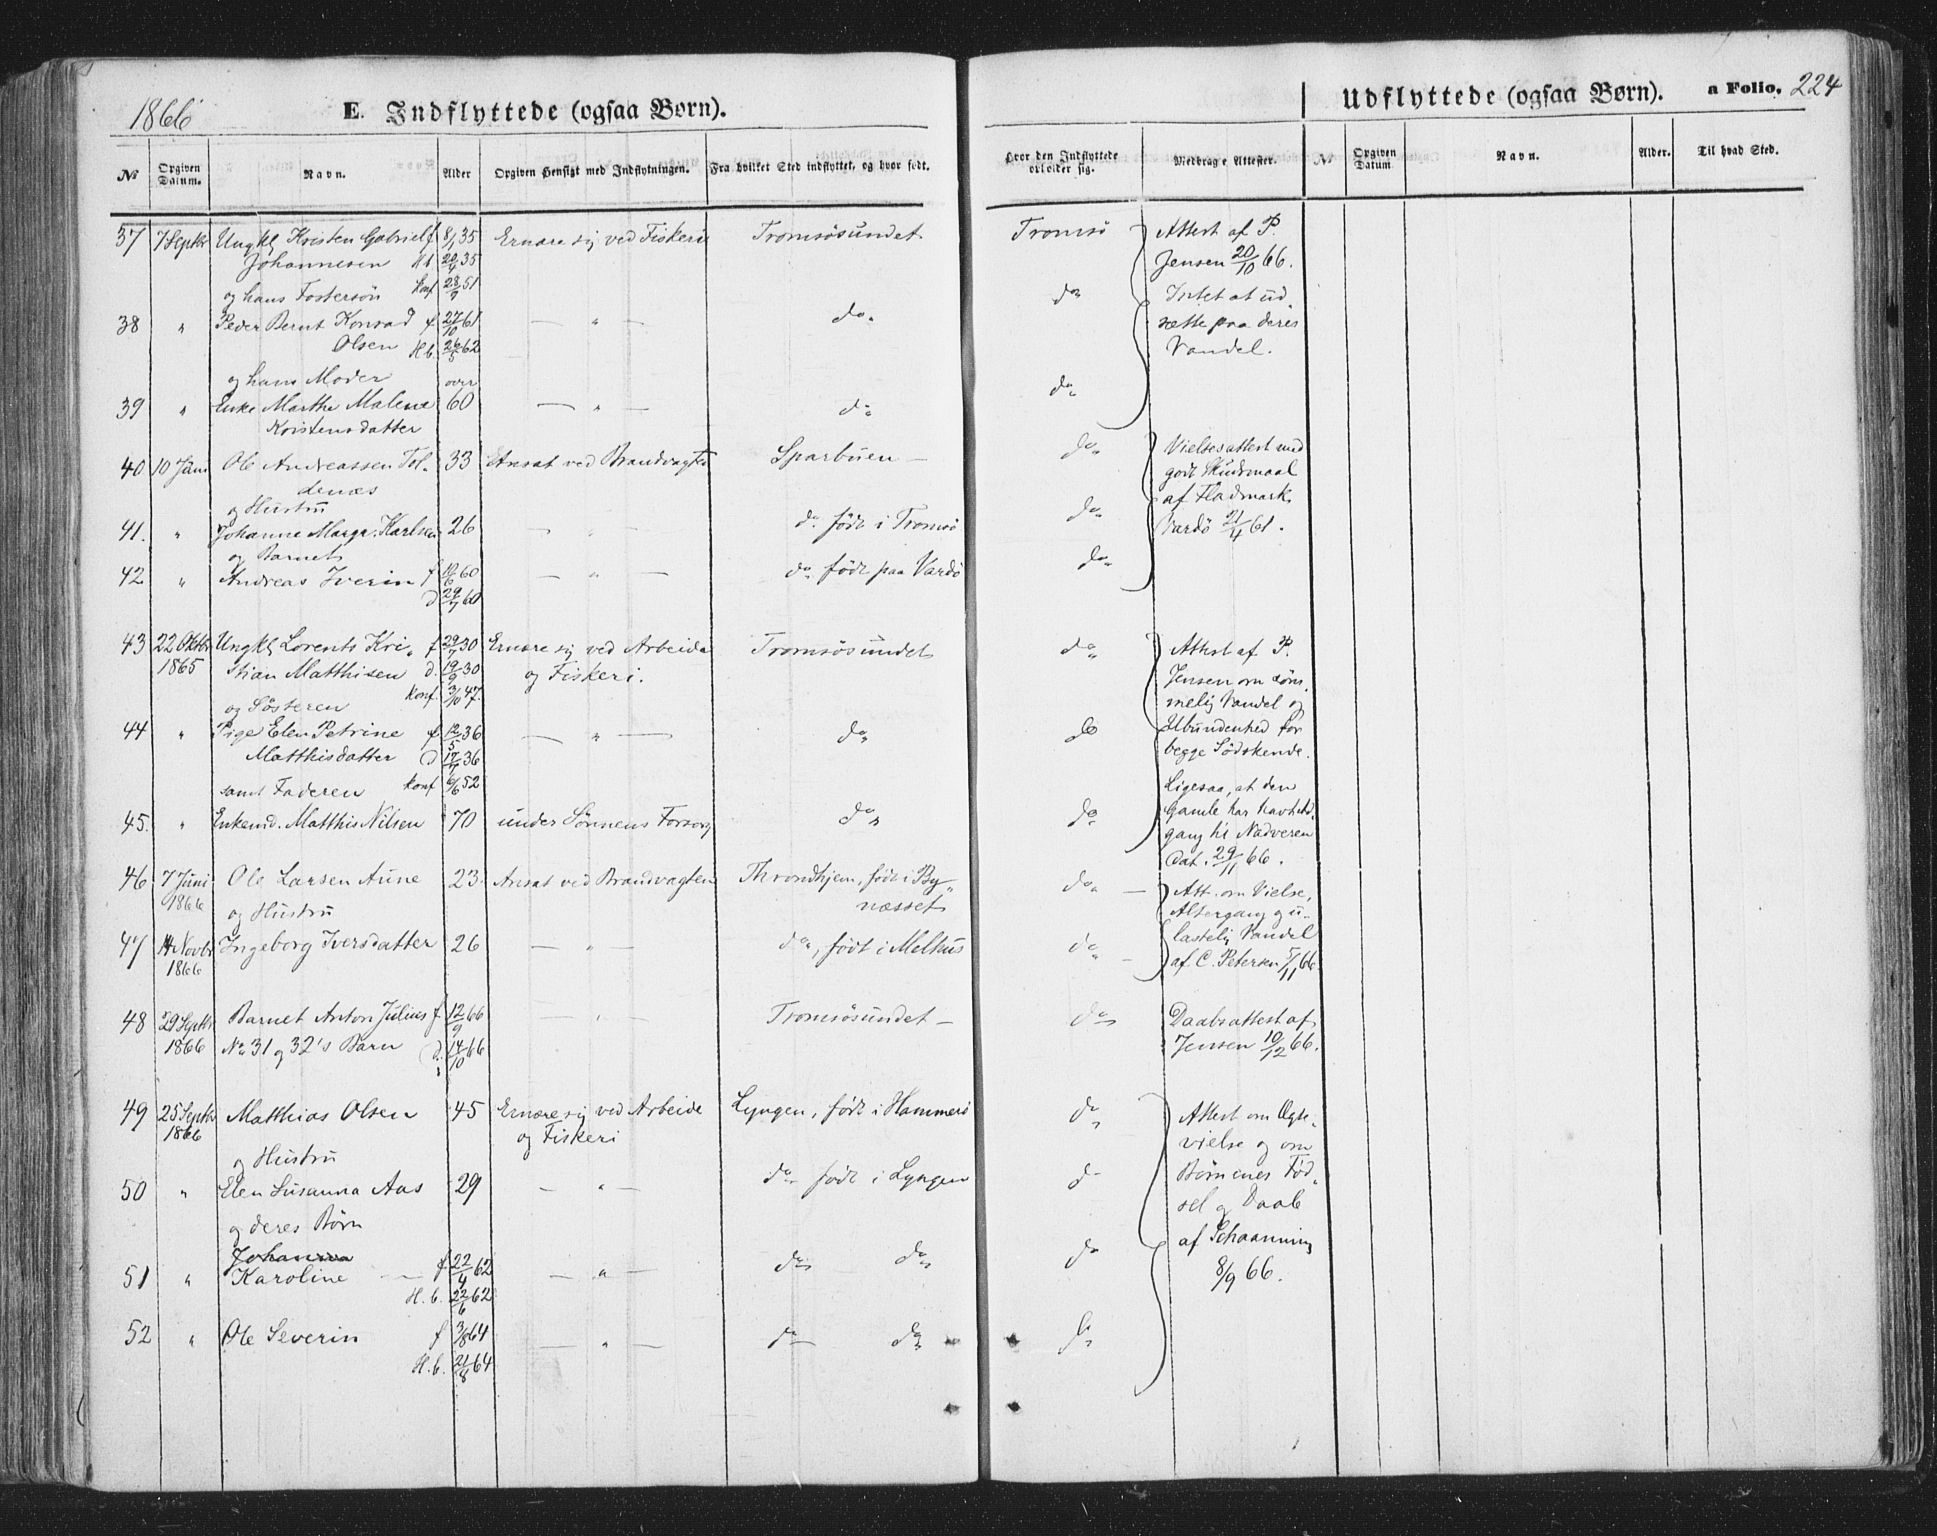 1866
E. Indflyttede (ogsaa Børn).
Udflyttede (ogsaa Børn).
a Folio. 224
No
Opgiven Datum.
Navn.
Alder
Opgiven Hensigt med Indflytningen.
Fra hvilket Sted indflyttet, og hvor født.
Hvor den Indflyttede opholder sig.
Medbragte Attester.
No
Opgiven Datum
Navn.
Alder.
Til hvad Sted.
37 7 Septbr Ungkl Kristen Gabriel f. 8/1 35 Ernære sig ved Fiskeri Tromsösundet Tromsö Attest af P.
Johannesen H.b. 20/4 35 Jensen 20/10 66.
og hans Fostersön Konf 28/9 51 do Intet at ud„
38 „ Peder Bernt Konrad f 27/10 61 — „ — do sætte paa deres
Olsen H.b. 26/5 62 Vandel.
og hans Moder over do
39 „ Enke Marthe Malene 60 — „ — do
Kristensdatter
40 10 Juni Ole Andreassen Tol- 33 Ansat ved Brandvagten Sparbuen — do Vielsesattest med
denæs godt Skudsmaal
og Hustru af Fladmark
41. „ Johanne Margr. Karlsen 26 — „ — do födt i Tromsö do Vardö 21/4 61.
og Barnet
42 „ Andreas Iverin f 10/6 60 — „ — do födt paa Vardö do
d 29/7 60
43 22 Oktbr Ungkl Lorents Kri„ f 29/7 30 Ernære sig ved Arbeide Tromsösundet do Attest af P.
1865 stian Matthisen d. 19/9 30 og Fiskeri. Jensen om söm„
Konf. 3/10 47. melig Vandel og
og Sösteren
44 „ Pige Elen Petrine f 12/5 36 — „ — do do Ubundenhed for
Matthisdatter d 17/7 36 begge Södskende.
samt Faderen Konf 6/6 52 Ligesaa, at den
45. „ Enkemd. Matthis Nilsen 70 under Sönnens Forsorg do do Gamle har havt Ad„
gang til Nadveren
Dat. 29/11 66.
46 7 Juni Ole Larsen Aune 23. Ansat ved Brandvagten Throndhjem, födt i By„ do — Att. om Vielse,
1866 og Hustru næsset Altergang g u„
47 14 Novbr Ingeborg Iversdatter 26 — „ — do, födt i Melhus do — lastelig Vandel
1866 af C. Petersen 5/11 66.
48 29 Septbr Barnet Anton Julius f. 12/9 66 — „ — Tromsösundet — do Daabsattest af
1866 No 31 og 32's Barn d. 14/10 66 Jensen 10/12 66.
49 25 Septbr Matthias Olsen 45 Ernære sig ved Arbeide Lyngen, födt i Hammerö do Attest om Ægte„
1866 og Fiskeri vielse og om
og Hustru
50 „ Elen Susanna Aas 29 — „ — do födt i Lyngen do Børnenes Fød„
og deres Børn sel og Daab
Johanna af Schaanning
51 „ Karoline — f 22/4 62 — „ — do do do 8/9 66.
H.b. 22/6 62
52 „ Ole Severin f 3/8 64 — „ — do do do
H.b. 21/8 64